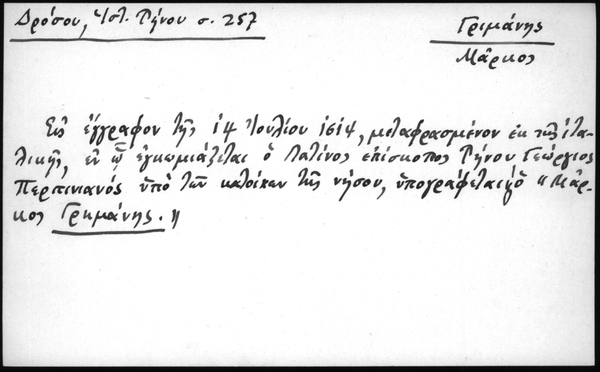 Δρόσου, Ἱστ. Τήνου σ. 257
Γριμάνης
Μᾶρκος
Εἰς ἔγγραφον τῆς 14 Ἰουλίου 1614, μεταφρασμένον ἐκ τῆς ἰτα-
λικῆς, ἐν ᾧ ἐγκωμιάζεται ὁ Λατῖνος ἐπίσκοπος Τήνου Γεώργιος
Περπινιανός ὑπὸ τῶν κατοίκων τῆς νήσου, ὑπογράφεται ὁ "Μᾶρ-
κος Γρημάνης."